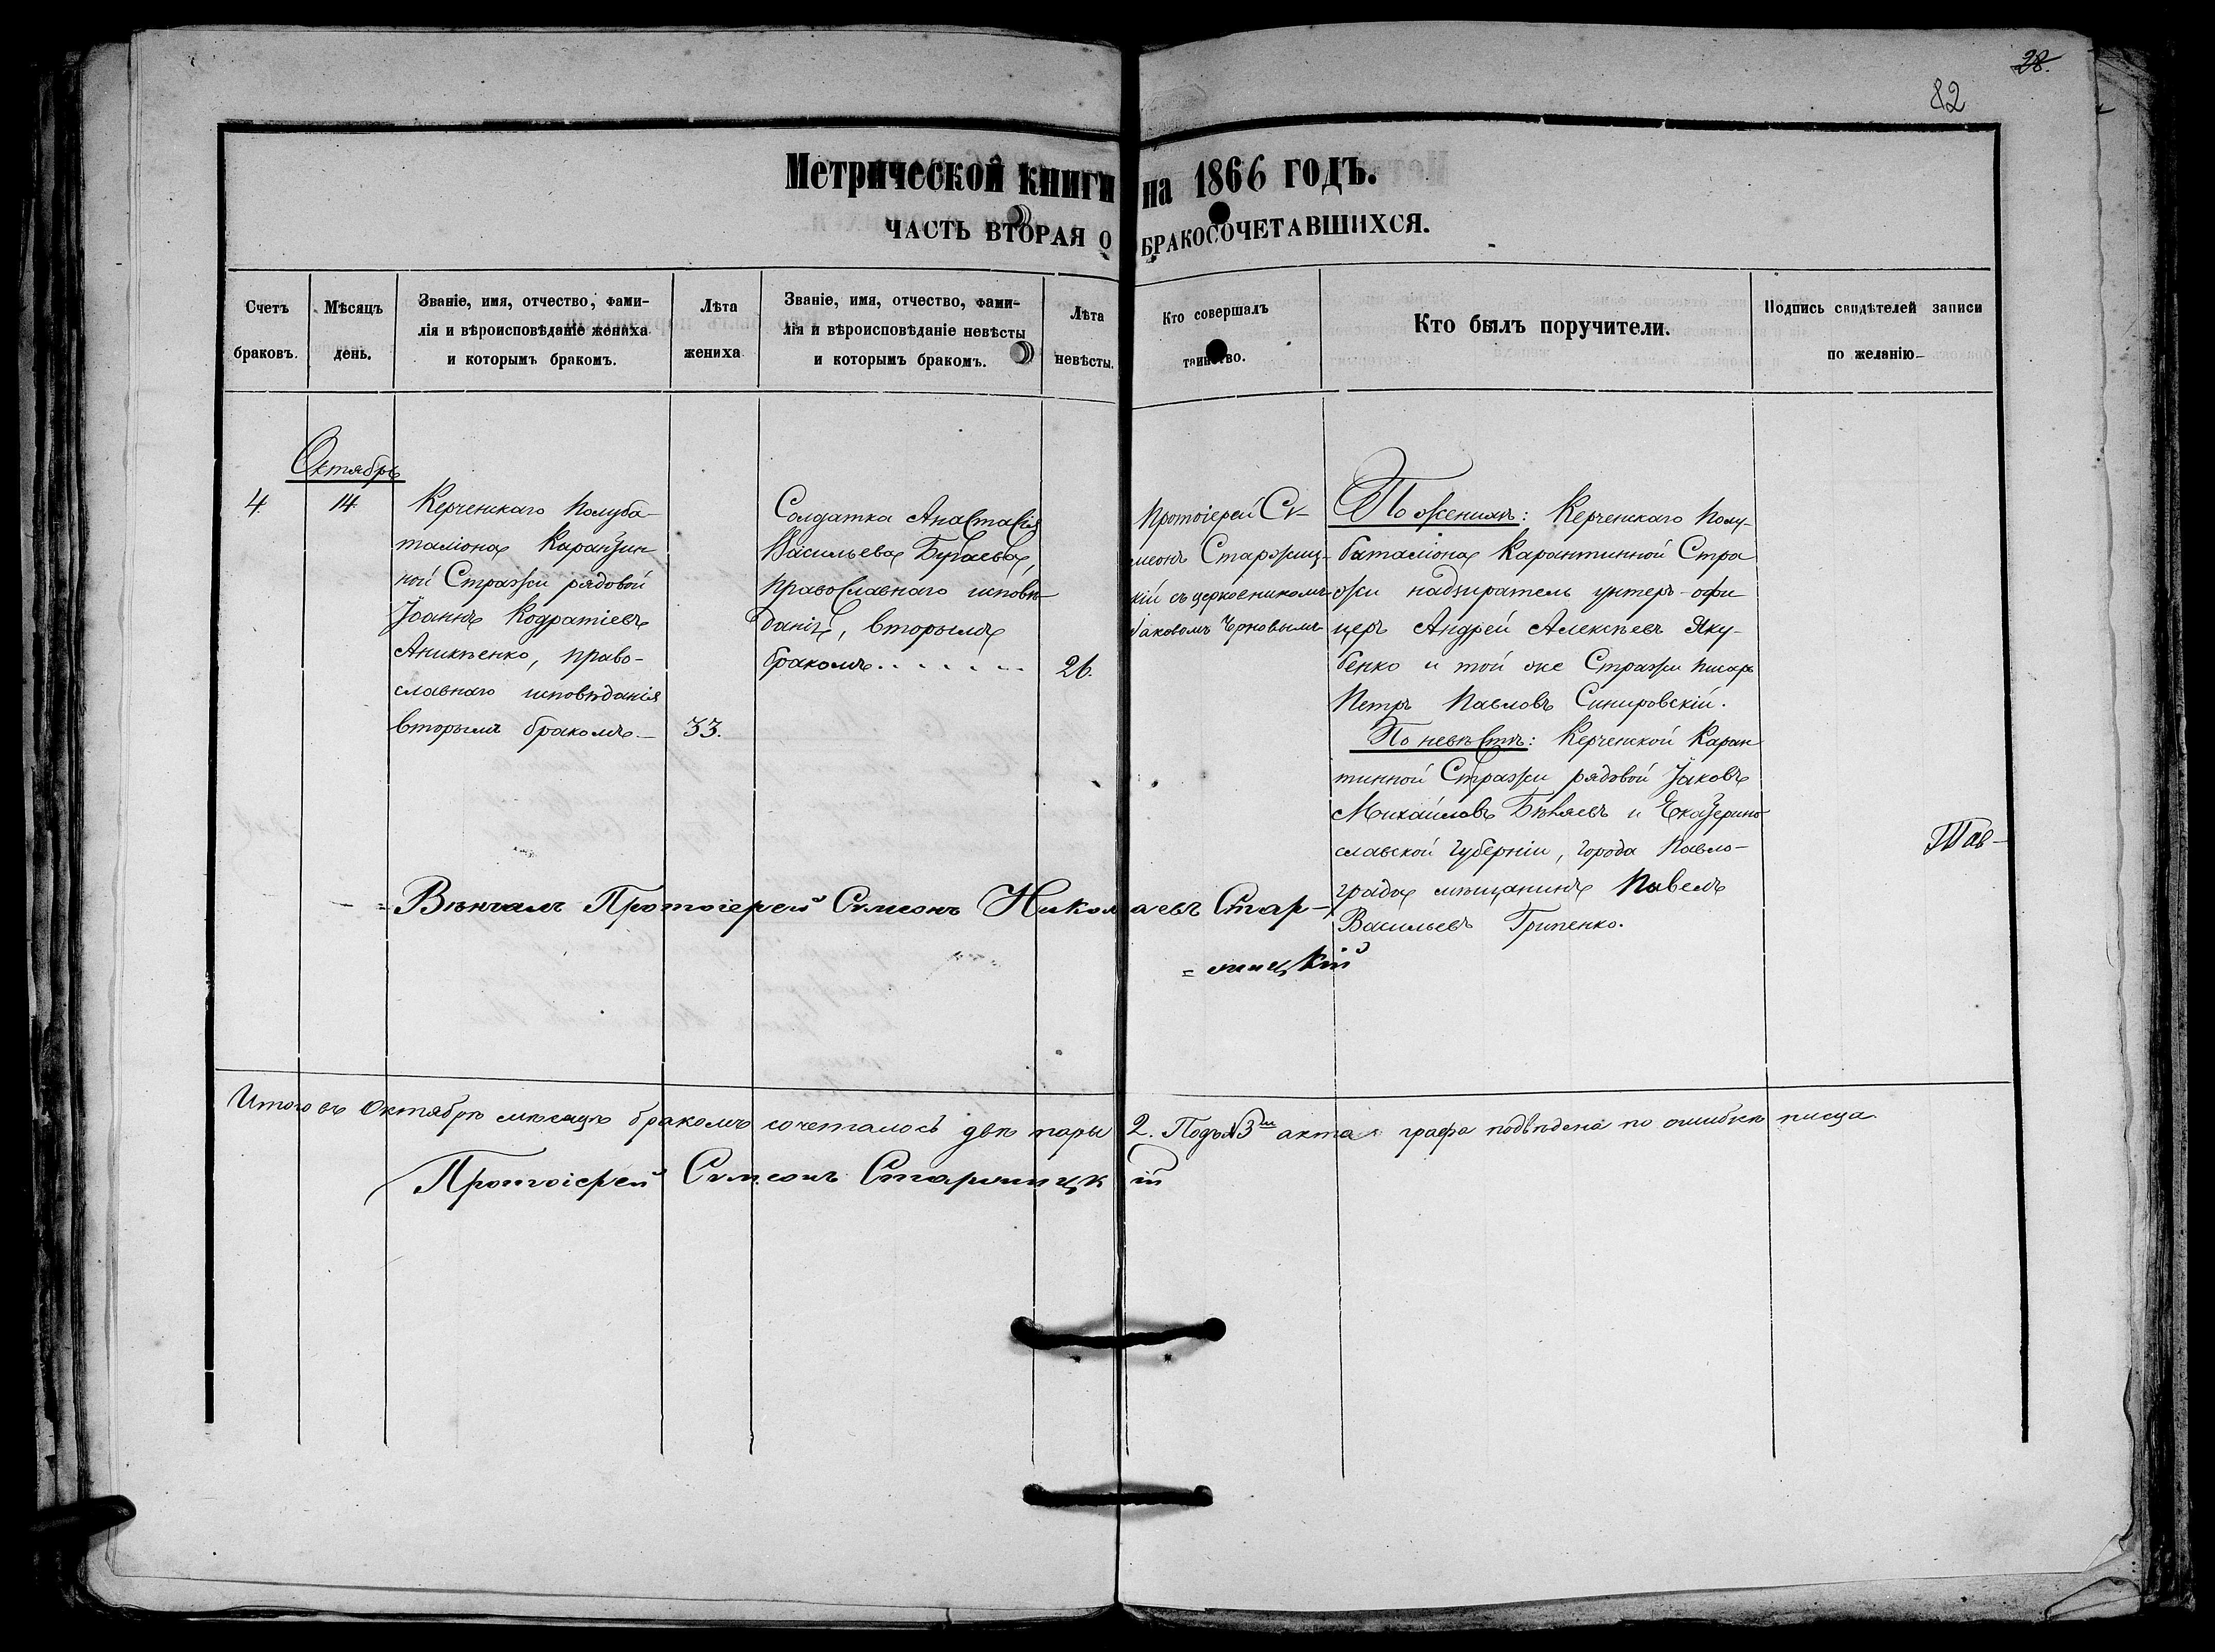 28.
82
Метрической книги на 1866 годъ.
ЧАСТЬ ВТОРАЯ О БРАКОСОЧЕТАВШИХСЯ.
Счетъ
браковъ.
Мѣсяцъ
день.
Званіе, имя, отчество, фами-
лія и вѣроисповѣданіе жениха
и которымъ бракомъ.
Лѣта
жениха
Званіе, имя, отчество, фами-
лія и вѣроисповѣданіе невѣсты
и которымъ бракомъ.
Лѣта
невѣсты.
Кто совершалъ
таинство.
Кто былъ поручители.
Подпись свидѣтелей записи
по желанію
Октябрь
4.
14
Керченскаго Полуба-
таліона Карантин
ной Стражи рядовой
Іоаннъ Кодратіевъ
Аникѣенко, право-
славнаго исповѣданія
вторымъ бракомъ.
33.
Солдатка Анастасія
Васильева Бугаева,
православнаго исповѣ
данія, вторымъ
бракомъ
26.
Протоіерей Сѵ-
меонъ Старжиц-
кій съ церковникомъ
Іаковомъ Чрновымъ
По женихѣ: Керченскаго Полу-
баталіона Карантинной Стра
жи надзиратель унтеръ-офи
церъ Андрей Алексѣевъ Яку-
бенко и той же Стражи писарь
Петръ Павловъ Синировскій.
По невѣстѣ: Керченской Каран
тинной Стражи рядовой Іаковъ
Михайловъ Бѣляевъ и Екатерино
славской губерніи, города Павло-
града мѣщанинъ Павелъ
Васильевъ Грипенко.
Тав-
Вѣнчалъ Протоіерей Сѵмеонъ Николаевъ Стар-
=жицкій
Итого въ Октябрѣ мѣсяцѣ бракомъ сочеталось двѣ пары 2. Подъ 3мъ актамъ графа подведена по ошибкѣ писца
Протоіерей Сѵмеонъ Старжицкій